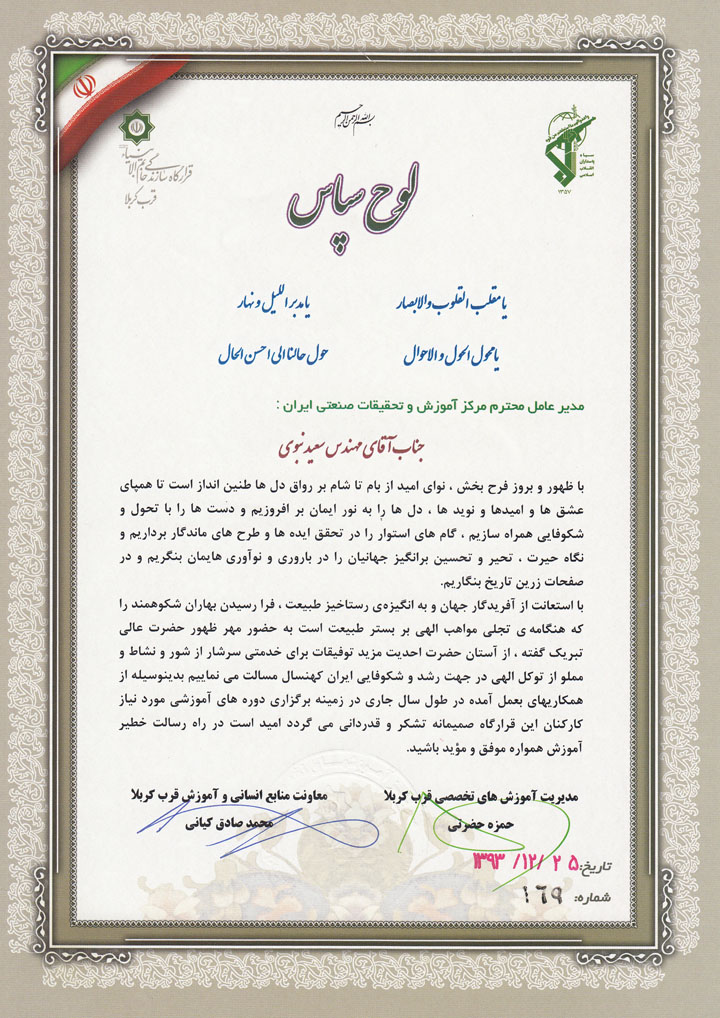 بسم الله الرحمن الرحیم
قرارگاه سازندگی خاتم الانبیاء
قرب کربلا
سپاه
پاسداران
انقلاب
اسلامی
۱۳۵۷
لوح سپاس
یا مقلب القلوب والابصار یا مدبر اللیل و نهار
یا محول الحول و الاحوال حول حالنا الی احسن الحال
مدیر عامل محترم مرکز آموزش و تحقیقات صنعتی ایران :
جناب آقای مهندس سعید نبوی
با ظهور و بروز فرح بخش ، نوای امید از بام تا شام بر رواق دل ها طنین انداز است تا همپای
عشق ها و امیدها و نوید ها ، دل ها را به نور ایمان بر افروزیم و دست ها را با تحول و
شکوفایی همراه سازیم ، گام های استوار را در تحقق ایده ها و طرح های ماندگار برداریم و
نگاه حیرت ، تحیر و تحسین برانگیز جهانیان را در باروری و نوآوری هایمان بنگریم و در
صفحات زرین تاریخ بنگاریم.
با استعانت از آفریدگار جهان و به انگیزه‌ی رستاخیز طبیعت ، فرا رسیدن بهاران شکوهمند را
که هنگامه ی تجلی مواهب الهی بر بستر طبیعت است به حضور مهر ظهور حضرت عالی
تبریک گفته ، از آستان حضرت احدیت مزید توفیقات برای خدمتی سرشار از شور و نشاط و
مملو از توکل الهی در جهت رشد و شکوفایی ایران کهنسال مسالت می نماییم بدینوسیله از
همکاریهای بعمل آمده در طول سال جاری در زمینه برگزاری دوره های آموزشی مورد نیاز
کارکنان این قرارگاه صمیمانه تشکر و قدردانی می گردد امید است در راه رسالت خطیر
آموزش همواره موفق و مؤید باشید.
مدیریت آموزش های تخصصی قرب کربلا
حمزه حضرتی
معاونت منابع انسانی و آموزش قرب کربلا
محمد صادق کیانی
تاریخ: ۱۳۹۳/۱۲/۲۵
شماره: ۱۶۹